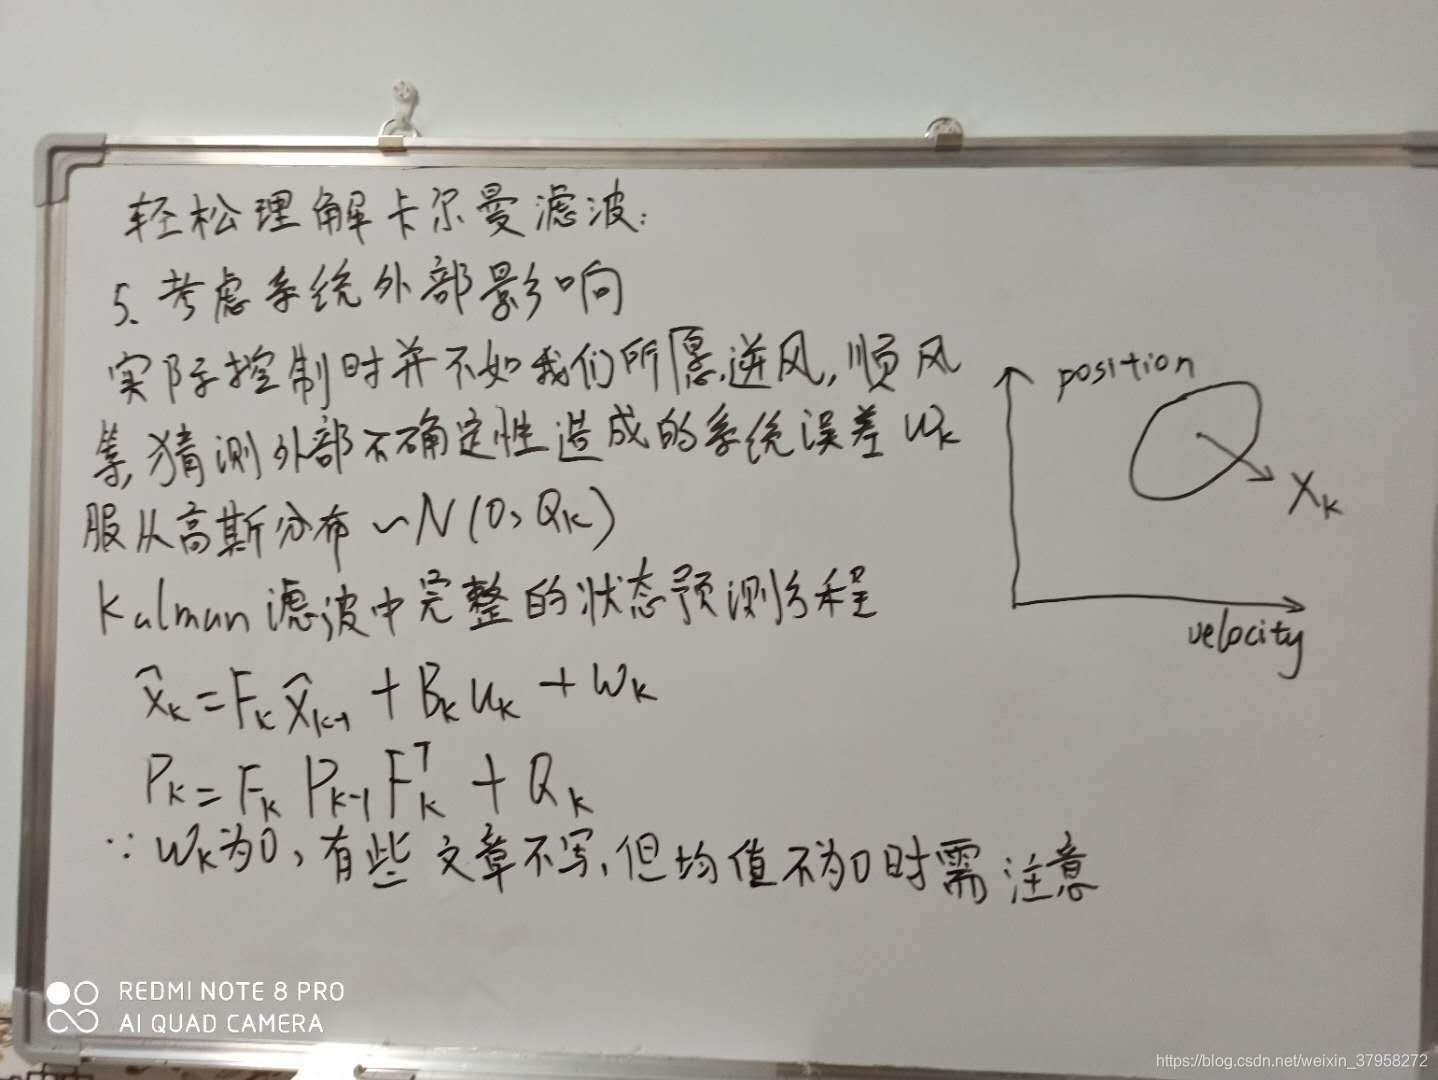 轻松理解卡尔曼滤波:
5、考虑系统外部影响
实际控制时并不如我们所愿,逆风,顺风
等,猜测外部不确定性造成的系统误差 Wk
服从高斯分布 ~N(0, Qk)
Kalman滤波中完整的状态预测方程
x̂k = Fk x̂k-1 + Bk uk + Wk
Pk = Fk Pk-1 Fk^T + Qk
∵ Wk为0,有些文章不写,但均值不为0时需注意
position
Xk
velocity
REDMI NOTE 8 PRO
AI QUAD CAMERA
https://blog.csdn.net/weixin_37958272